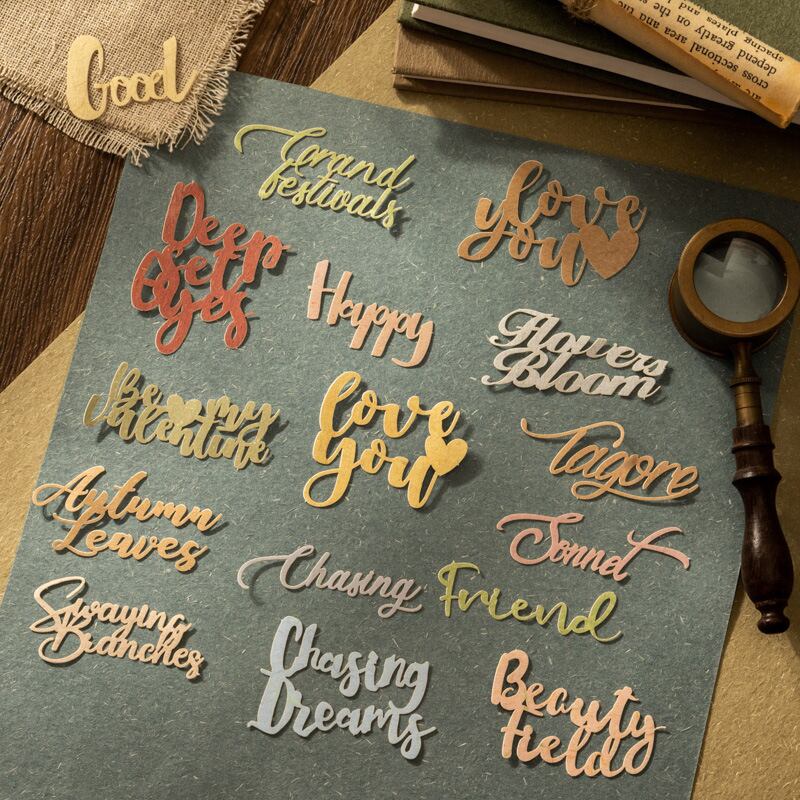 Good
Grand
festivals
Love
you
Deep
Set
Eyes
Happy
Flowers
Bloom
Be my
Valentine
love
you
Tagore
Autumn
Leaves
Sonnet
Chasing
Friend
Swaying
Branches
Chasing
Dreams
Beauty
Field
are au
cross sectional area and the
depend greatly on the
spacing plates